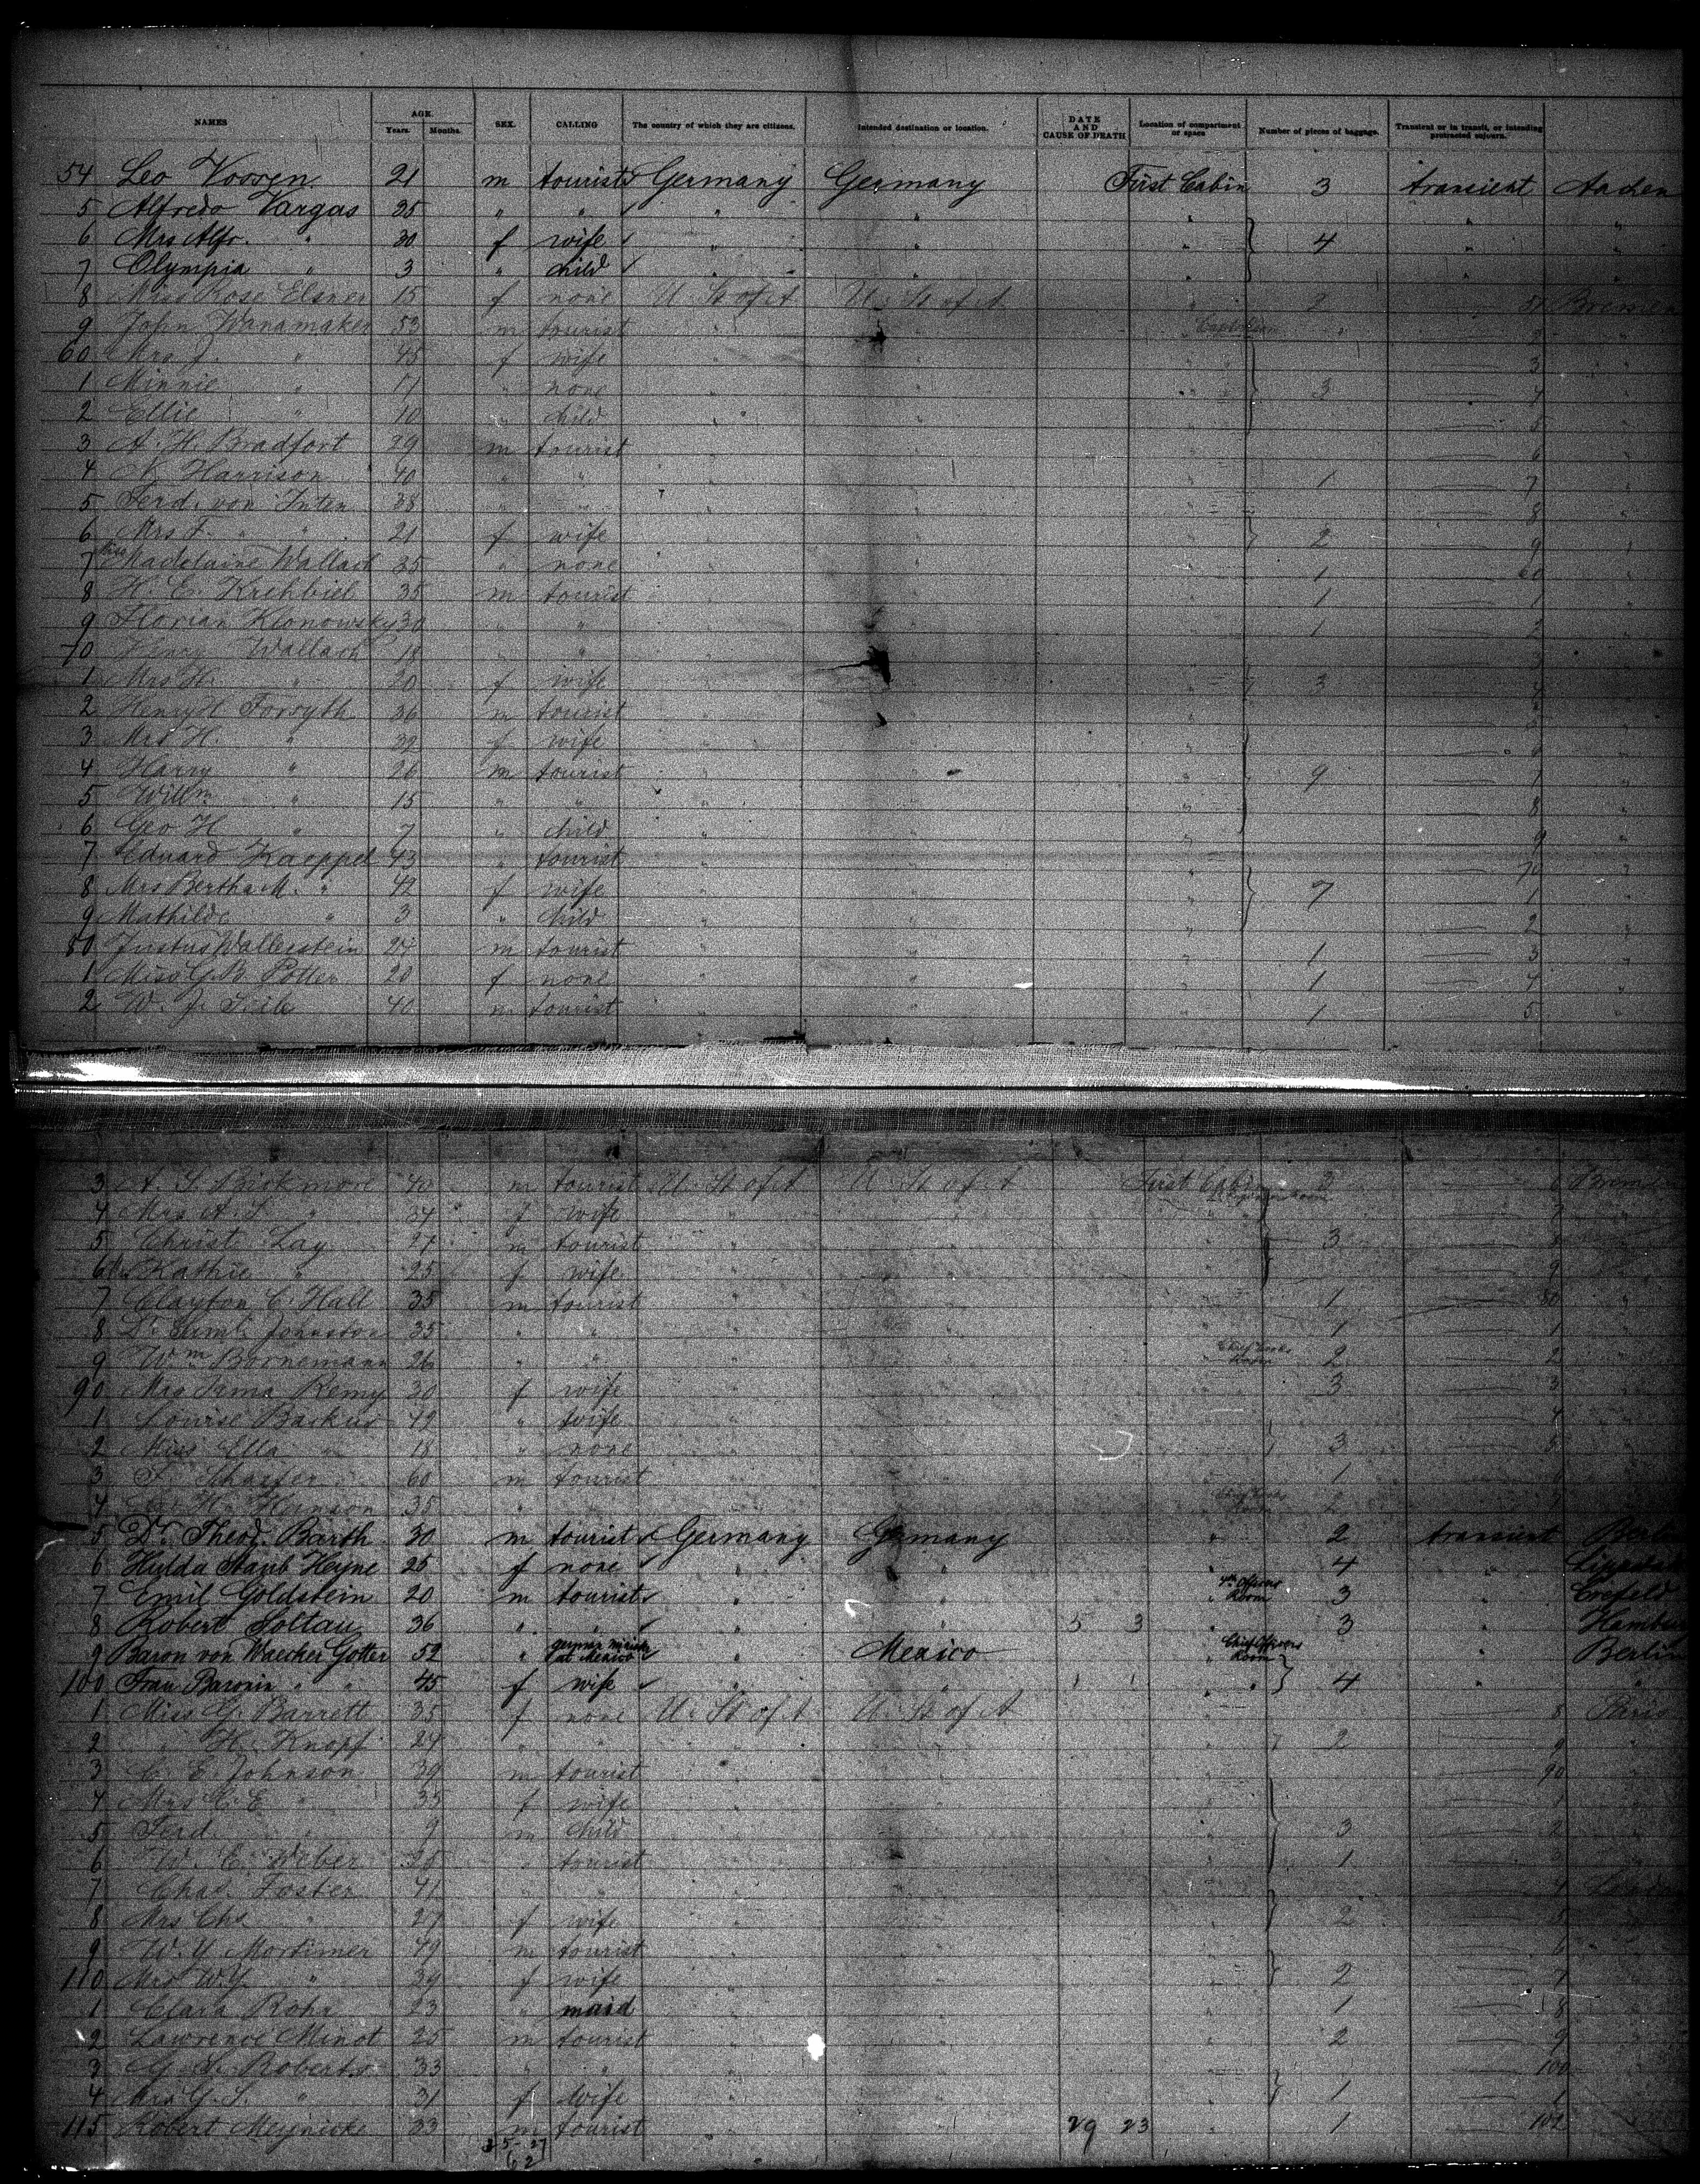 NAMES AGE. Years. Months. SEX. CALLING The country of which they are citizens. Intended destination or location. DATE AND CAUSE OF DEATH Location of compartment or space Number of pieces of baggage. Transient or in transit, or intending protracted sojourn.
54 Leo Vossen 21 m tourist Germany Germany First Cabin 3 transient Aachen
5 Alfredo Vargas 35 " " " " " " "
6 Mrs Alfr. " 30 f wife " " " 4 " "
7 Olympia " 3 " child " " " " "
8 Miss Rose Elsner 15 f none U. St of A U. St of A " 2 Bremen
9 John Wanamaker 53 m tourist " " " 2 "
60 Mrs J. " 45 f wife " " " 3 "
1 Minnie " 17 " none " " " 3 4 "
2 Ellie " 10 " child " " " 5 "
3 A. H. Bradfort 29 m tourist " " " 6 "
4 N. Harrison 40 " " " " " 1 7 "
5 Ferd. von Inten 38 " " " " " 8 "
6 Mrs F. " " 21 f wife " " " 2 9 "
7 Miss Madelaine Wallach 35 " none " " " 1 60 "
8 H. E. Krehbiel 35 m tourist " " " 1 1 "
9 Florian Klonowsky 30 " " " " " 1 2 "
70 Henry Wallach 18 " " " " " 3 "
1 Mrs H. " 20 f wife " " " 3 4 "
2 Henry H Forsyth 36 m tourist " " " "
3 Mrs H. " 39 f wife " " " "
4 Harry " 26 m tourist " " " 9 "
5 Willm " 15 " " " " " 8 "
6 Geo H " 7 " child " " " 9 "
7 Eduard Kaeppel 43 " tourist " " " 70 "
8 Mrs Bertha M. " 42 f wife " " " 7 1 "
9 Mathilde " 3 " child " " " 2 "
80 Justus Wallerstein 24 m tourist " " " 1 3 "
1 Miss G. B. Potter 20 f none " " " 1 4 "
2 W. J. 40 m tourist " " " 1 5 "
3 A. S. Bickmore 40 m tourist U. St of A U. St of A First Cabin 6
4 Mrs A. S. " 34 f wife " " " "
5 Christ Lay 27 m tourist " " " 3
6 Kathie " 25 f wife " " " 9
7 Clayton C. Hall 35 m tourist " " " 1 80 "
8 Dr Johnston 35 " " " " " 1 1 "
9 Wm Bornemann 26 " " " " " Chief Cooks Room 2 2 "
90 Mrs Irma Remy 30 f wife " " " 3 3 "
1 Louise Backus 42 " wife " " " 4 "
2 Miss Ella " 18 " none " " " 3 5 "
3 F. Schaefer 60 m tourist " " " 1
4 H. Hanson 35 " " " " " 2
5 Dr Theod. Barth 30 m tourist Germany Germany " 2 transient Berlin
6 Hulda Staub Heyne 25 f none " " " 4 "
7 Emil Goldstein 20 m tourist " " " 4th Officers Room 3 " Crefeld
8 Robert Soltau 36 " " " " 5 3 " 3 " Hamburg
9 Baron von Waecker Gotter 52 " at Mexico " Mexico " Chief Officers Room " Berlin
100 Frau Baronin " " 45 f wife " " 1 1 " 4 " "
1 Miss G. Barrett 35 f none U. St of A U. St of A " 8 Paris
2 " H. Knopf 24 " " " " " 2 9 "
3 C. E. Johnson 39 m tourist " " " 90 "
4 Mrs C. E. " 35 f wife " " " 1 "
5 Ferd. " 9 m child " " " 3 2 "
6 W. E. Weber " tourist " " " 1 3 "
7 Chas. Foster 41 " " " " " 4 London
8 Mrs Chs " 27 f wife " " " 2 5 "
9 W. Y. Mortimer 49 m tourist " " " 6 "
110 Mrs W. Y. " 39 f wife " " " 2 7 "
1 Clara Rohr 23 " maid " " " 1 8 "
2 Lawrence Minot 25 m tourist " " " 2 9 "
3 G. S. Roberts 33 " " " " " 100 "
4 Mrs G. S. " 31 f wife " " " 1 1 "
115 Robert Meynicke 33 m tourist " " 29 23 " 1 102
35 27
62